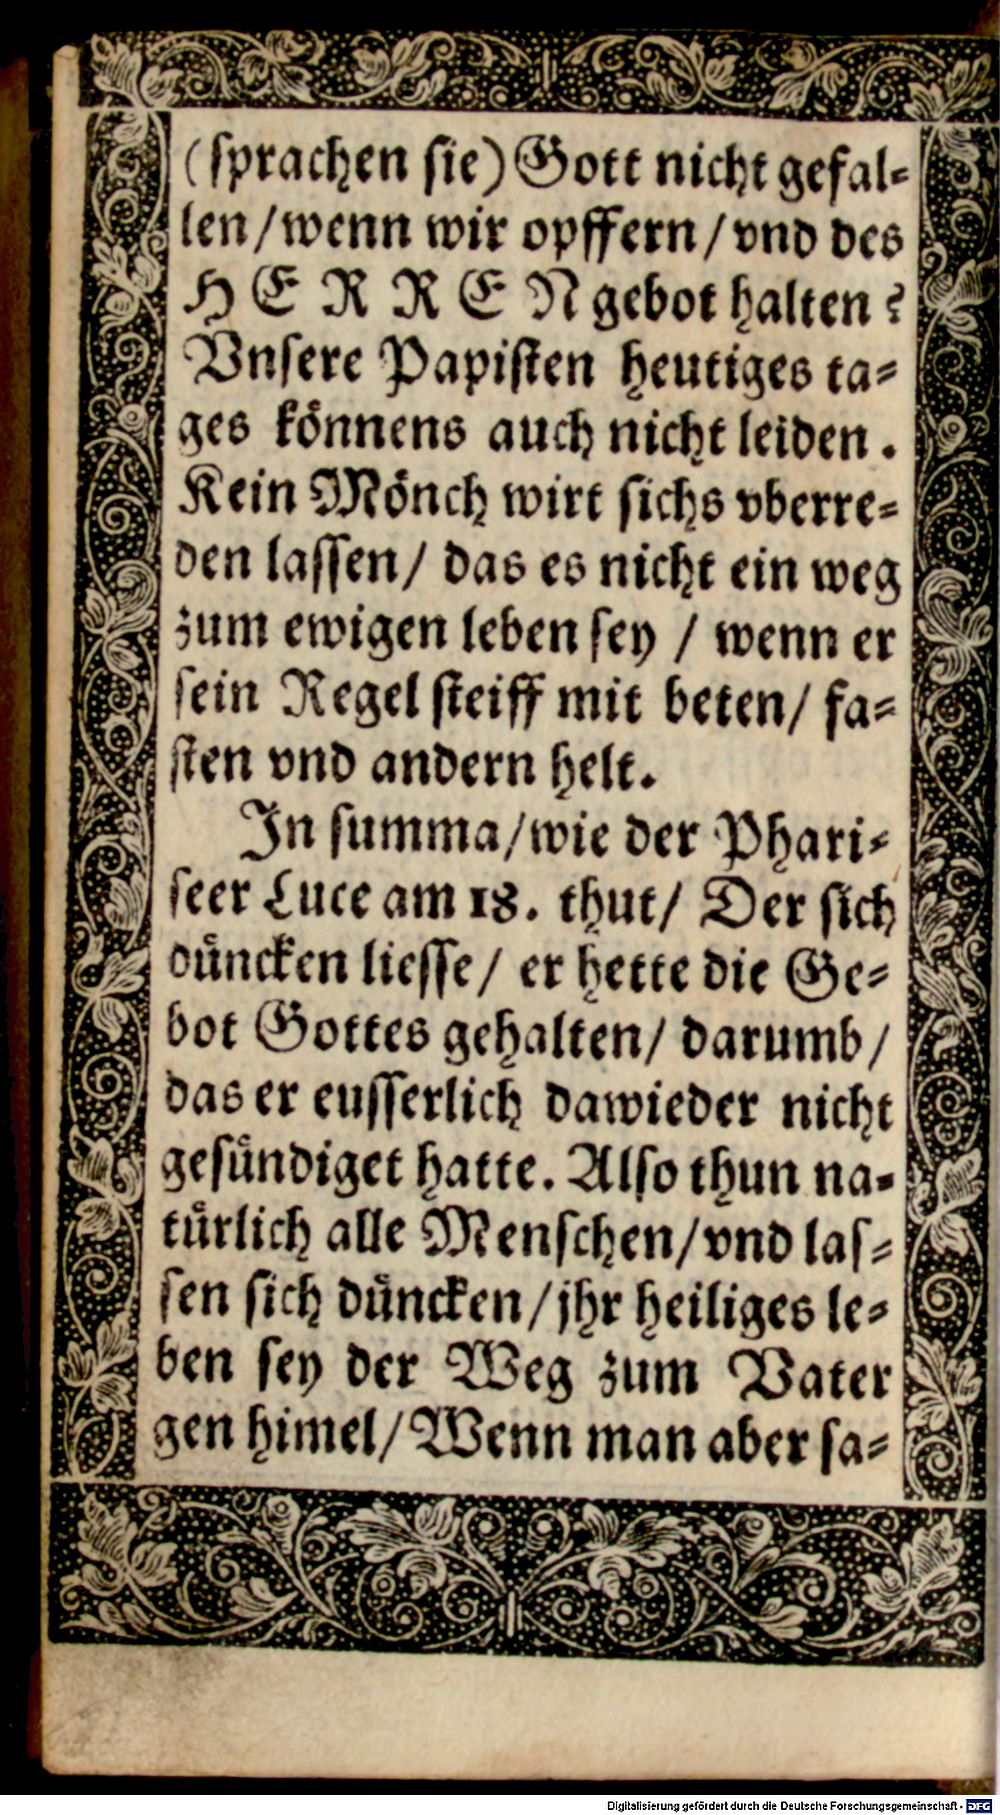 (sprachen sie) Gott nicht gefal-
len / wenn wir opffern / vnd des
HERREN gebot halten?
Vnsere Papisten heutiges ta-
ges koͤnnens auch nicht leiden.
Kein Moͤnch wirt sichs vberre-
den lassen / das es nicht ein weg
zum ewigen leben sey / wenn er
sein Regel steiff mit beten / fa-
sten vnd andern helt.
In summa / wie der Phari-
seer Luce am 18. thut / Der sich
duͤncken liesse / er hette die Ge-
bot Gottes gehalten / darumb /
das er eusserlich dawieder nicht
gesuͤndiget hatte. Also thun na-
tuͤrlich alle Menschen / vnd las-
sen sich duͤncken / jhr heiliges le-
ben sey der Weg zum Vater
gen himel / Wenn man aber sa-
Digitalisierung gefördert durch die Deutsche Forschungsgemeinschaft - DFG